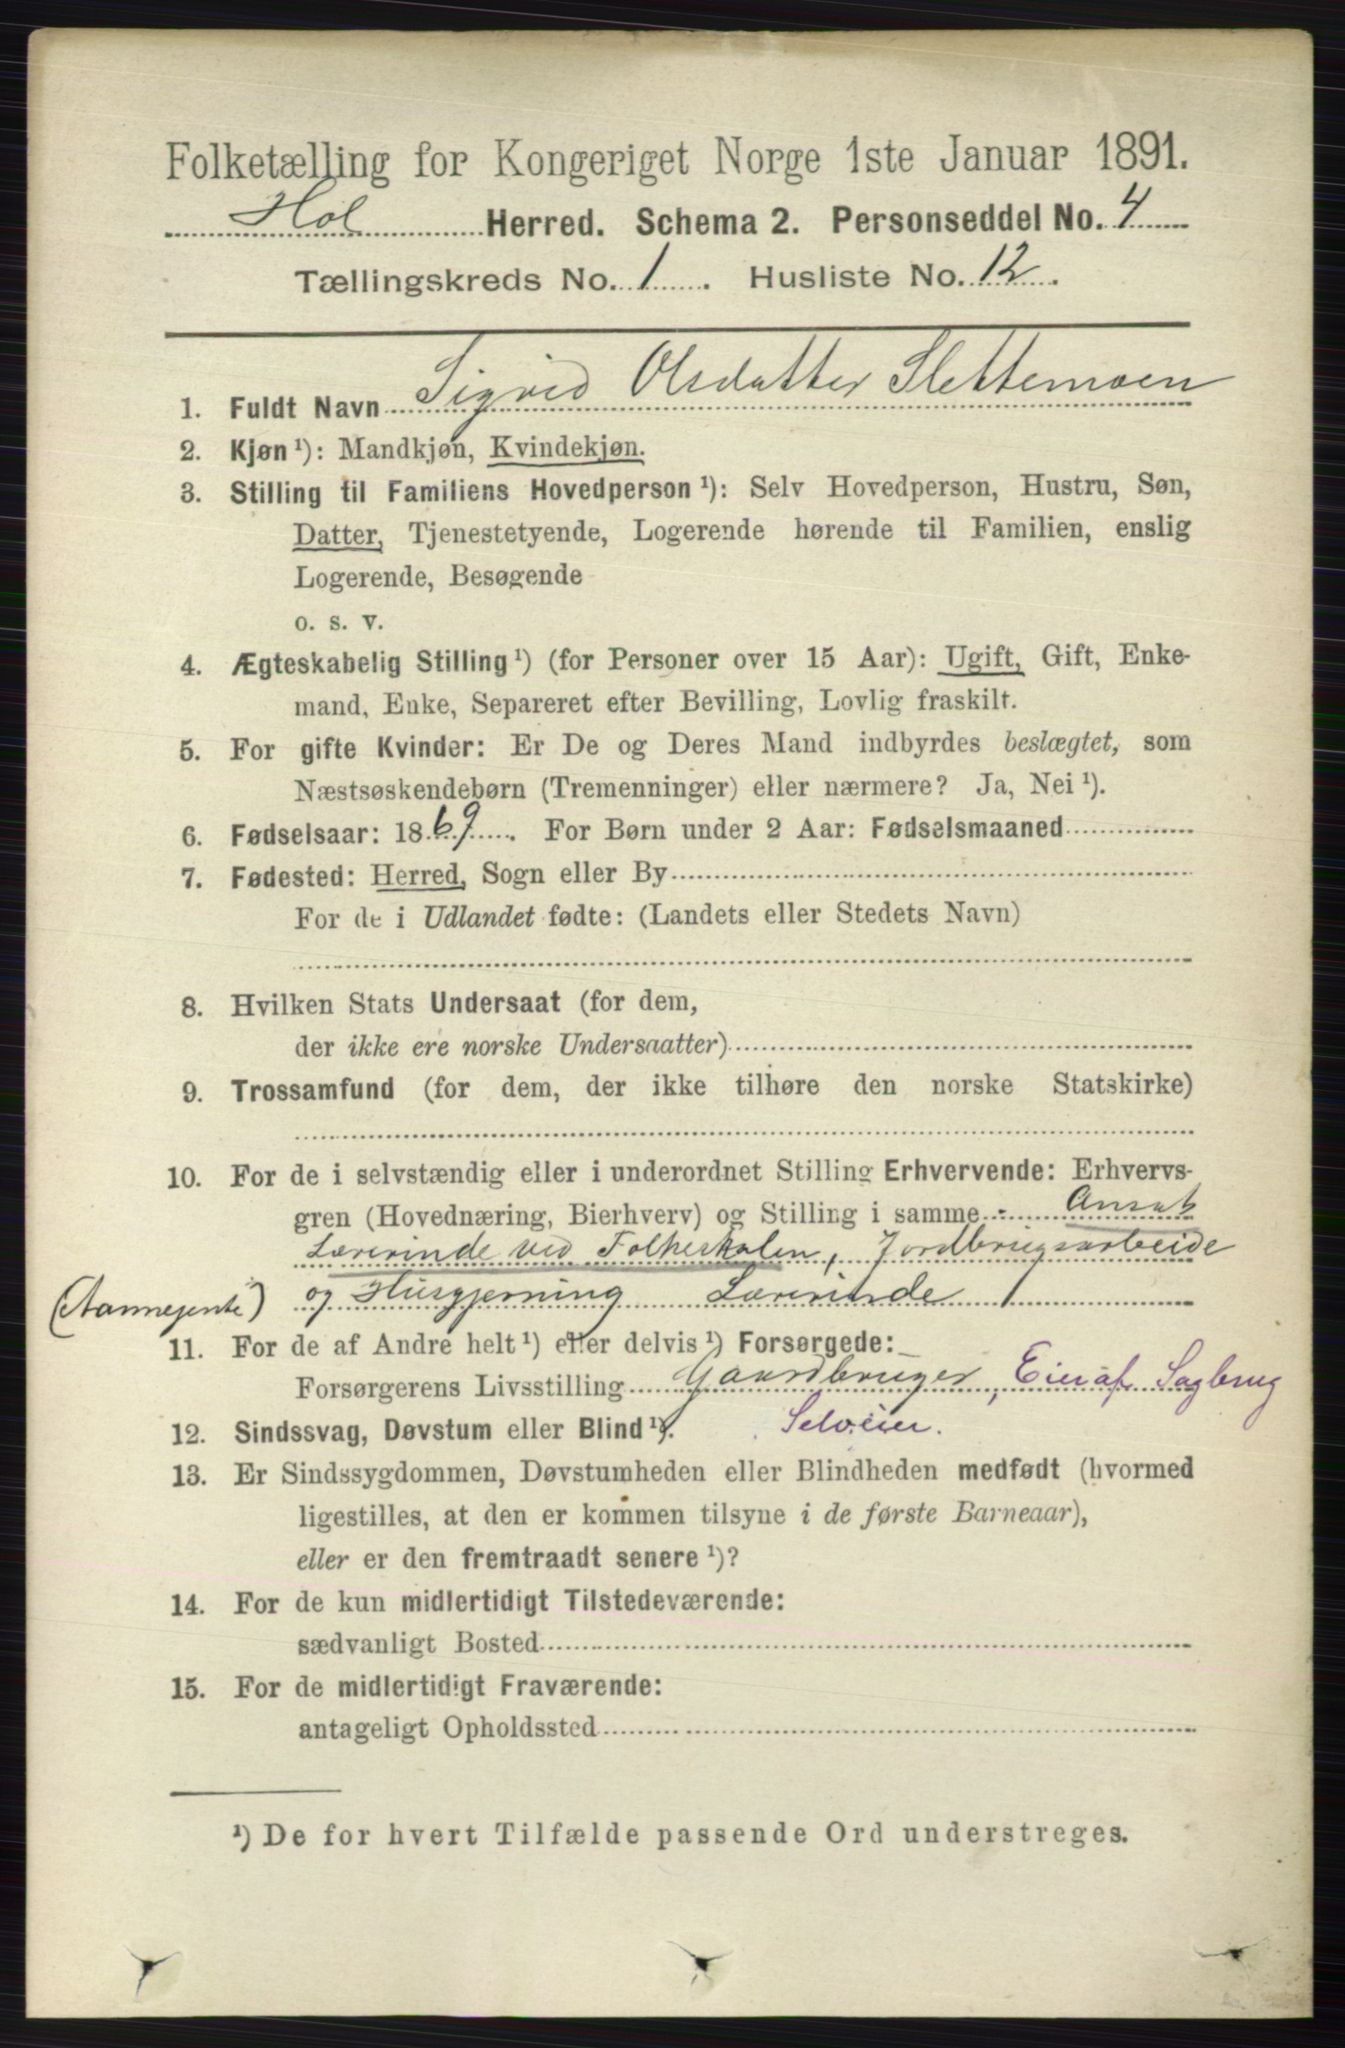 Folketælling for Kongeriget Norge 1ste Januar 1891.
Hol Herred. Schema 2. Personseddel No. 4
Tællingskreds No. 1. Husliste No. 12.
1. Fuldt Navn Sigrid Olsdatter Slettemoen
2. Kjøn ¹): Mandkjøn, Kvindekjøn.
3. Stilling til Familiens Hovedperson ¹): Selv Hovedperson, Hustru, Søn,
Datter, Tjenestetyende, Logerende hørende til Familien, enslig
Logerende, Besøgende
o. s. v.
4. Ægteskabelig Stilling ¹) (for Personer over 15 Aar): Ugift, Gift, Enke-
mand, Enke, Separeret efter Bevilling, Lovlig fraskilt.
5. For gifte Kvinder: Er De og Deres Mand indbyrdes beslægtet, som
Næstsøskendebørn (Tremenninger) eller nærmere? Ja, Nei ¹).
6. Fødselsaar: 1869. For Børn under 2 Aar: Fødselsmaaned
7. Fødested: Herred, Sogn eller By
For de i Udlandet fødte: (Landets eller Stedets Navn)
8. Hvilken Stats Undersaat (for dem,
der ikke ere norske Undersaatter)
9. Trossamfund (for dem, der ikke tilhøre den norske Statskirke)
10. For de i selvstændig eller i underordnet Stilling Erhvervende: Erhvervs-
gren (Hovednæring, Bierhverv) og Stilling i samme - Ansat
Lærerinde ved Folkeskolen, Jordbrugsarbeide
(Aannejente) og Husgjerning Lærerinde
11. For de af Andre helt ¹) eller delvis ¹) Forsørgede:
Forsørgerens Livsstilling Gaardbruger, Eier af Sagbrug
12. Sindssvag, Døvstum eller Blind ¹). Selveier.
13. Er Sindssygdommen, Døvstumheden eller Blindheden medfødt (hvormed
ligestilles, at den er kommen tilsyne i de første Barneaar),
eller er den fremtraadt senere ¹)?
14. For de kun midlertidigt Tilstedeværende:
sædvanligt Bosted
15. For de midlertidigt Fraværende:
antageligt Opholdssted
¹) De for hvert Tilfælde passende Ord understreges.